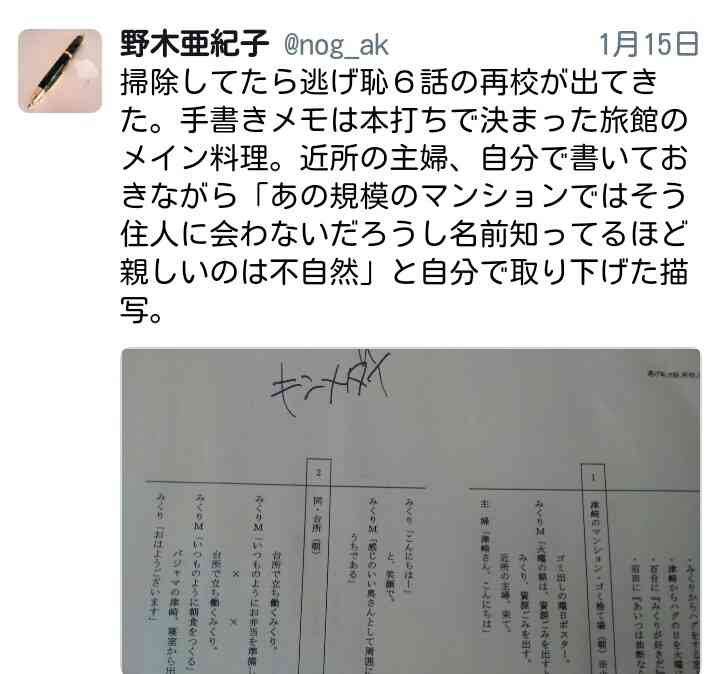 野木亜紀子 @nog_ak 1月15日
掃除してたら逃げ恥６話の再校が出てき
た。手書きメモは本打ちで決まった旅館の
メイン料理。近所の主婦、自分で書いてお
きながら「あの規模のマンションではそう
住人に会わないだろうし名前知ってるほど
親しいのは不自然」と自分で取り下げた描
写。
キンメダイ
・みくりからハグをする
・津崎からハグの日を火曜
・百合に『みくりが好きだ
1
津崎のマンション・ゴミ捨て場（朝）
ゴミ出しの曜日ポスター。
みくりＭ「火曜の朝は、資源ごみを出す
みくり、資源ごみを出す。
近所の主婦、来て。
主婦「津崎さん、こんにちは」
みくり「こんにちは！」
と、笑顔で。
みくりＭ「感じのいい奥さんとして周囲に
うちである」
2
同・台所（朝）
台所で立ち働くみくり。
みくりＭ「いつものようにお弁当を準備し
× ×
台所で立ち働くみくり。
みくりＭ「いつものように朝食をつくる」
パジャマの津崎、寝室から出
みくり「おはようございます」